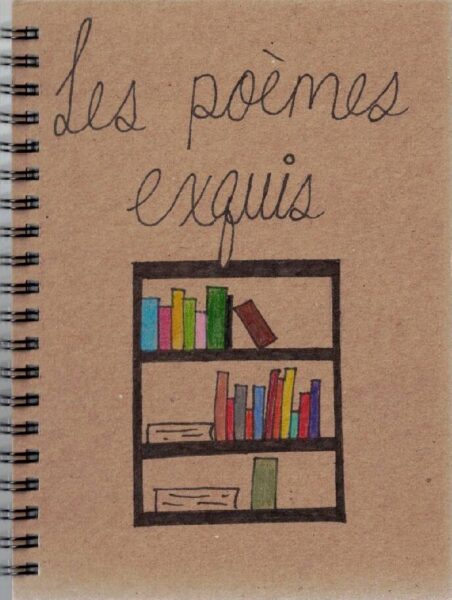 Les poèmes
exquis